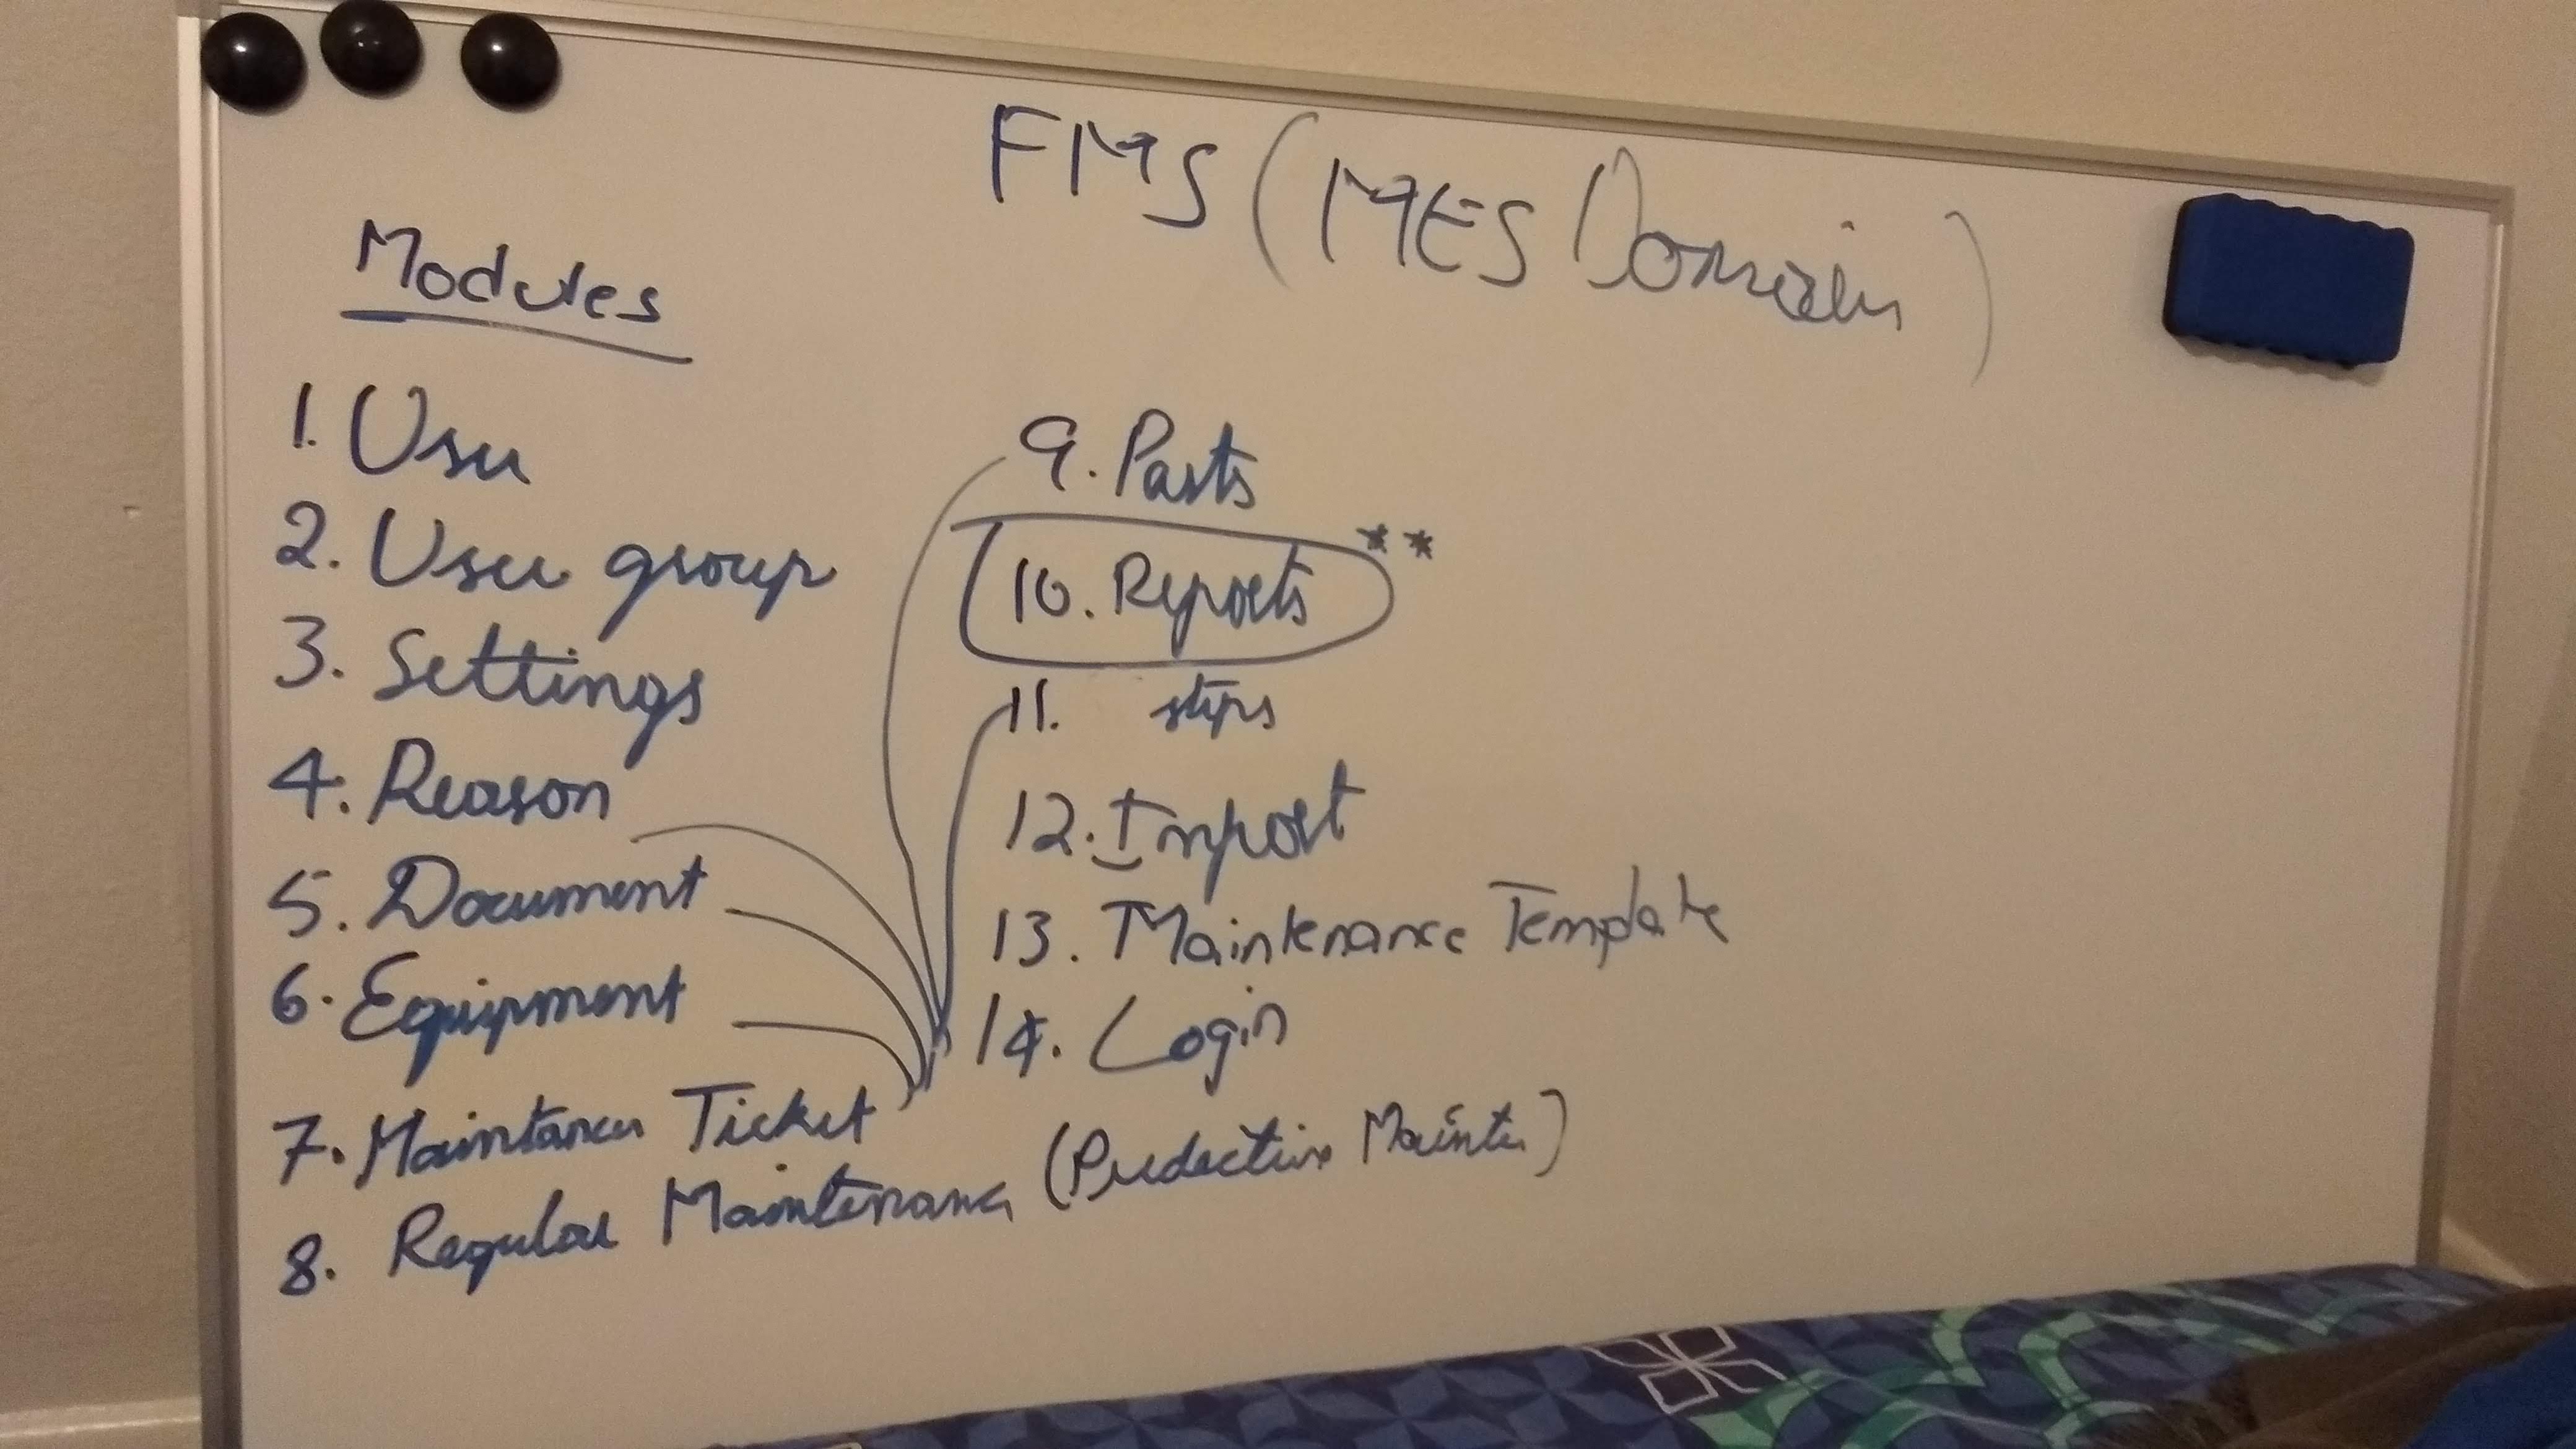 FMS (MES Domain)
Modules
1. User
2. User group
3. Settings
4. Reason
5. Document
6. Equipment
7. Maintance Ticket
8. Regular Maintenance (Predective Mainte)
9. Parts
10. Reports **
11. steps
12. Import
13. Maintenance Template
14. Login